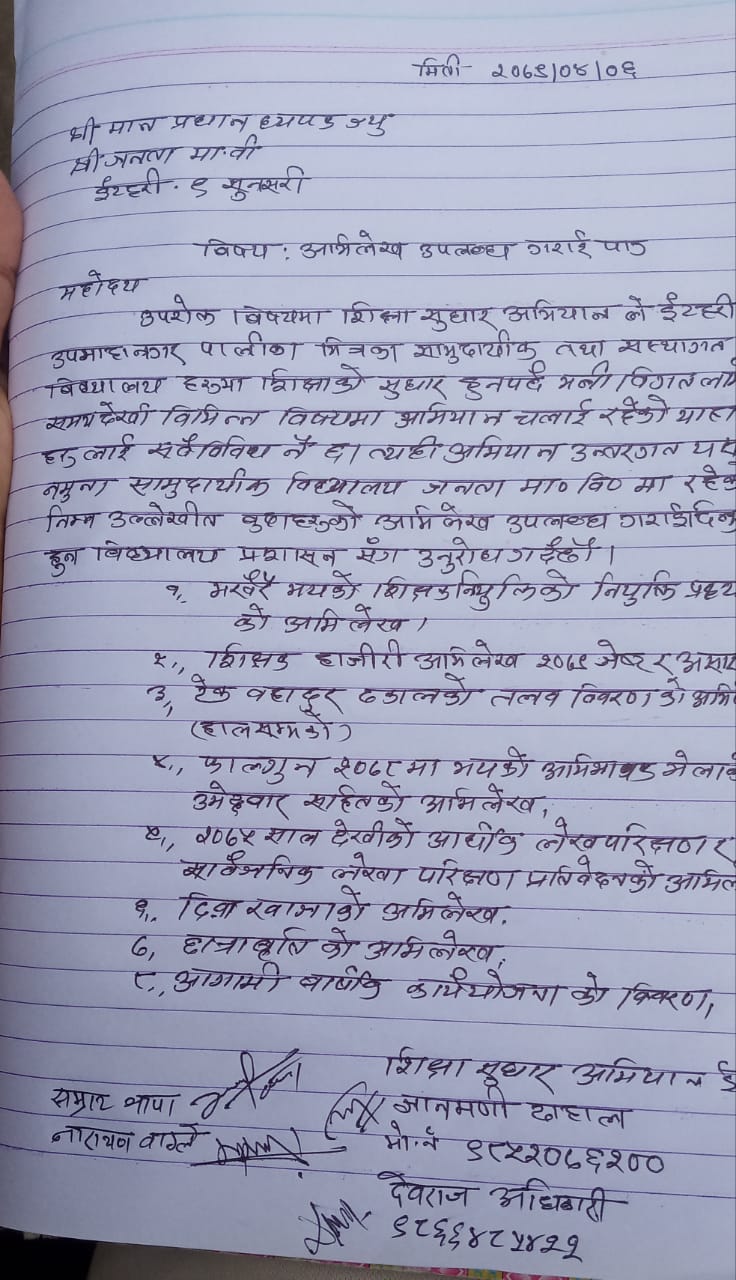 मिती २०७९/०४/०६
श्री मान प्रधान ध्यपक ज्यु
श्री जनता मा.वी
ईटहरी. ९ सुनसरी
विषय : अभिलेख उपलब्ध गराई पाउ
महोदय
उपरोक्त बिषयमा शिक्षा सुधार अभियान ले ईटहरी
उपमाहानगर पालीका भित्रका सामुदायीक तथा सस्थागत
बिद्यालय हरुमा शिक्षाको सुधार हुनपर्दै भनी विगत लामो
समय देखी विभिन्न विषयमा अभियान चलाई रहेको याहा
हरु लाई सर्वविविध नै छ। त्यही अभियान अन्तरगत यस
नमुना सामुदायीक विद्यालय जनता मा० वि० मा रहेका
निम्न उल्लेखीत कुराहरुको अभिलेख उपलब्ध गराईदिनु
हुन बिद्यालय प्रशासन सँग अनुरोध गर्दछौं।
१. भर्खरै भयको शिक्षक नियुक्तिको नियुक्ति
को अभिलेख।
२., शिक्षक हाजीरी अभिलेख २०७९ जेष्ट र असार
३, टेक वहादुर ढकालको तलव विवरण को
(हालसम्मको)
४., फाल्गुन २०७८ मा भयको अभिभावक भेलाको
उमेद्ववार सहितको अभिलेख,
५., २०७५ साल देखीको आर्थीक लेखपरिक्षण र
सार्वजनिक लेखा परिक्षण प्रतिवेदनको
६., दिवा खाजाको अभिलेख.
७, छात्रावृति को अभिलेख,
८., आगामी बार्षिक कार्ययोजना को विवरण,
शिक्षा सुधार अभियान
सम्राट थापा
ज्ञानमणी दाहाल
नारायण वाग्ले
मो.नं ९८५२०७६२००
देवराज अधिकारी
९८६६४८५४२२